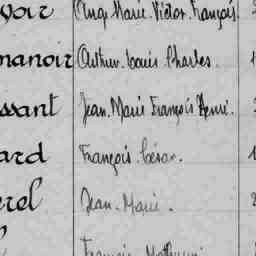 voir Ange Marie Victor François
manoir Arthur Louis Charles.
ssant Jean Marie François Henri.
ard François César.
rel Jean Marie.
François Mathurin